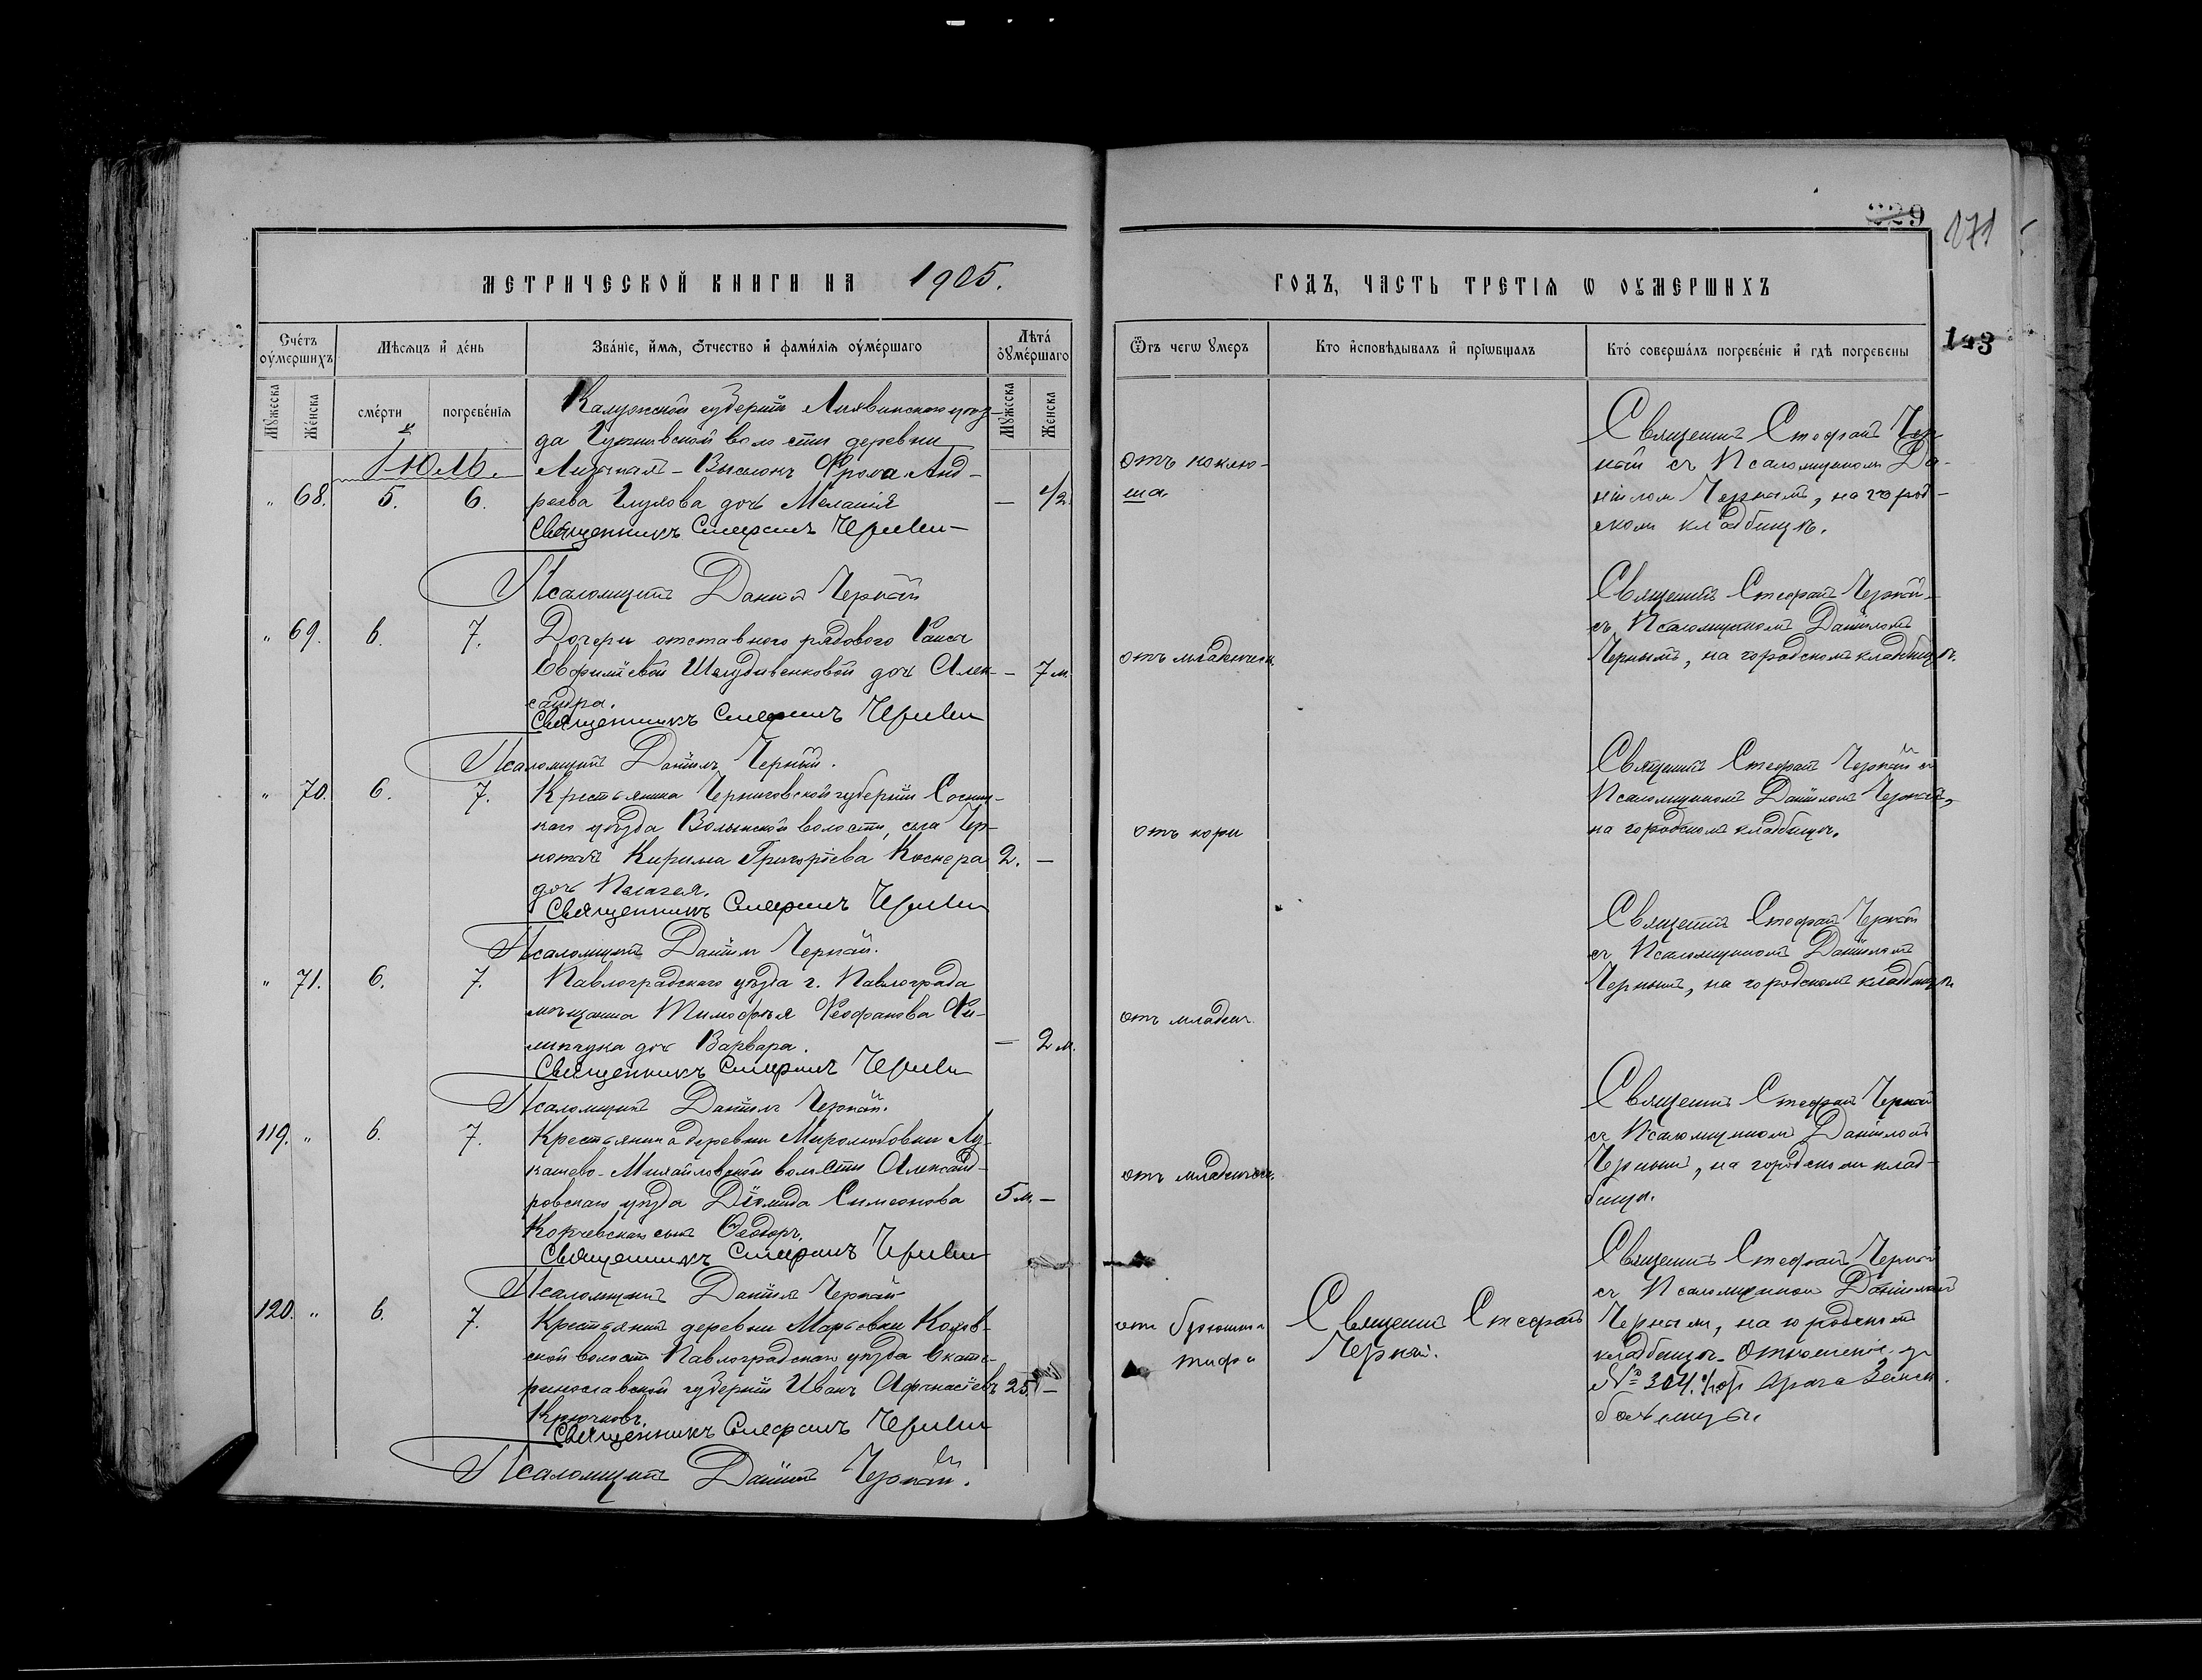 229
171
МЕТРИЧЕСКОЙ КНИГИ НА 1905.
ГОДЪ, ЧАСТЬ ТРЕТІѦ Ѡ ОУМЕРШИХЪ
Сче́тъ оу́мершихъ
Мѣсѧцъ и҆ де́нь
Зва́нїе, и҆́мѧ, ѻ҆́тчество и҆ фами́лїѧ оу́ме́ршаго
Лѣта́ оу́ме́ршаго
Ѿъ чегѡ ᲂумеръ
Кто и҆сповѣдывалъ и҆ прїѡбщалъ
Кто́ соверша́лъ погребе́нїе и҆ гдѣ погребены
143
Мꙋжеска
Женска
сме́рти
погребе́нїѧ
Мꙋжеска
Женска
Калужской губерніи Лихвинскаго уѣз-
да волости деревни
Іюль.
Выселокъ Фрола Анд-
" 68. 5. 6. реева Глухова дочь Меланія — 1/2
Священникъ Стефанъ Черный
Псаломщикъ Даніилъ Черный
отъ коклю-
ша.
Священникъ Стефанъ Чер-
ный съ Псаломщикомъ Да-
ніиломъ Чернымъ, на город-
скомъ кладбищѣ.
" 69. 6. 7. Дочери отставного рядового
Евфиміевой дочь Алек- — 7 м.
сандра.
Священникъ Стефанъ Черный
Псаломщикъ Даніилъ Черный.
отъ младенческ.
Священникъ Стефанъ Черный
съ Псаломщикомъ Даніиломъ
Чернымъ, на городскомъ кладбищѣ.
" 70. 6. 7. Крестьянина Черниговской губерніи Сосниц-
каго уѣзда Волынской волости, села Чер-
нотичъ Кирила Григоріева 2. —
дочь Пелагея.
Священникъ Стефанъ Черный
Псаломщикъ Даніилъ Черный.
отъ кори
Священникъ Стефанъ Черный съ
Псаломщикомъ Даніиломъ Чернымъ,
на городскомъ кладбищѣ.
" 71. 6. 7. Павлоградскаго уѣзда г. Павлограда
мѣщанина Тимофея Феофанова Фи-
липчука дочь Варвара. — 2 м.
Священникъ Стефанъ Черный
Псаломщикъ Даніилъ Черный.
отъ младенч.
Священникъ Стефанъ Черный
съ Псаломщикомъ Даніиломъ
Чернымъ, на городскомъ кладбищѣ
119. " 6. 7. Крестьянина деревни Миролюбовки Лу-
кашево-Михайловской волости Александ-
ровскаго уѣзда Діомида Симеонова 5 м. —
Корчевскаго сынъ Ѳеодоръ.
Священникъ Стефанъ Черный
Псаломщикъ Даніилъ Черный
отъ младенческ.
Священникъ Стефанъ Черный
съ Псаломщикомъ Даніиломъ
Чернымъ, на городскомъ клад-
бищѣ.
120. " 6. 7. Крестьянинъ деревни Марьевки
ской волости Павлоградскаго уѣзда Екате-
ринославской губерніи Иванъ Афанасіевъ 25. —
Крючковъ.
Священникъ Стефанъ Черный
Псаломщикъ Даніилъ Черный.
отъ брюшного
тифа
Священникъ Стефанъ
Черный.
Священникъ Стефанъ Черный
съ Псаломщикомъ Даніиломъ
Чернымъ, на городскомъ
кладбищѣ. Отношеніе за
№ 304. врача Земск.
больницы